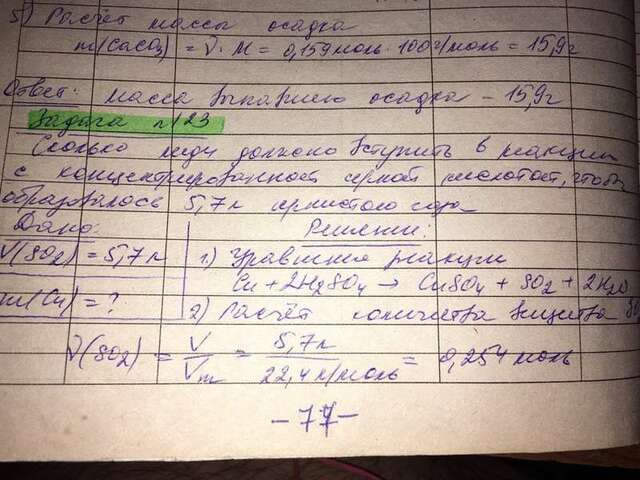 5) Расчёт массы осадка
m(CaCO3) = ν · M = 0,159 моль · 100 г/моль = 15,9 г
Ответ: масса выпавшего осадка – 15,9 г
Задача №23
Сколько меди должно вступить в реакцию
с концентрированной серной кислотой, чтобы
образовалось 5,7 л сернистого газа
Дано: Решение:
V(SO2) = 5,7 л 1) Уравнение реакции
Cu + 2H2SO4 → CuSO4 + SO2 + 2H2O
m(Cu) = ? 2) Расчёт количества вещества
ν(SO2) = V / Vm = 5,7 л / 22,4 л/моль = 0,254 моль
– 77 –